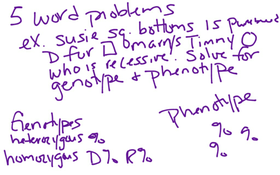 5 word problems
ex. susie sq. bottoms is purebred
D fur □ marrys Timmy ○
who is recessive. Solve for
genotype + phenotype
Genotypes
heterozygous %
homozygous D% R%
Phenotype
% %
%